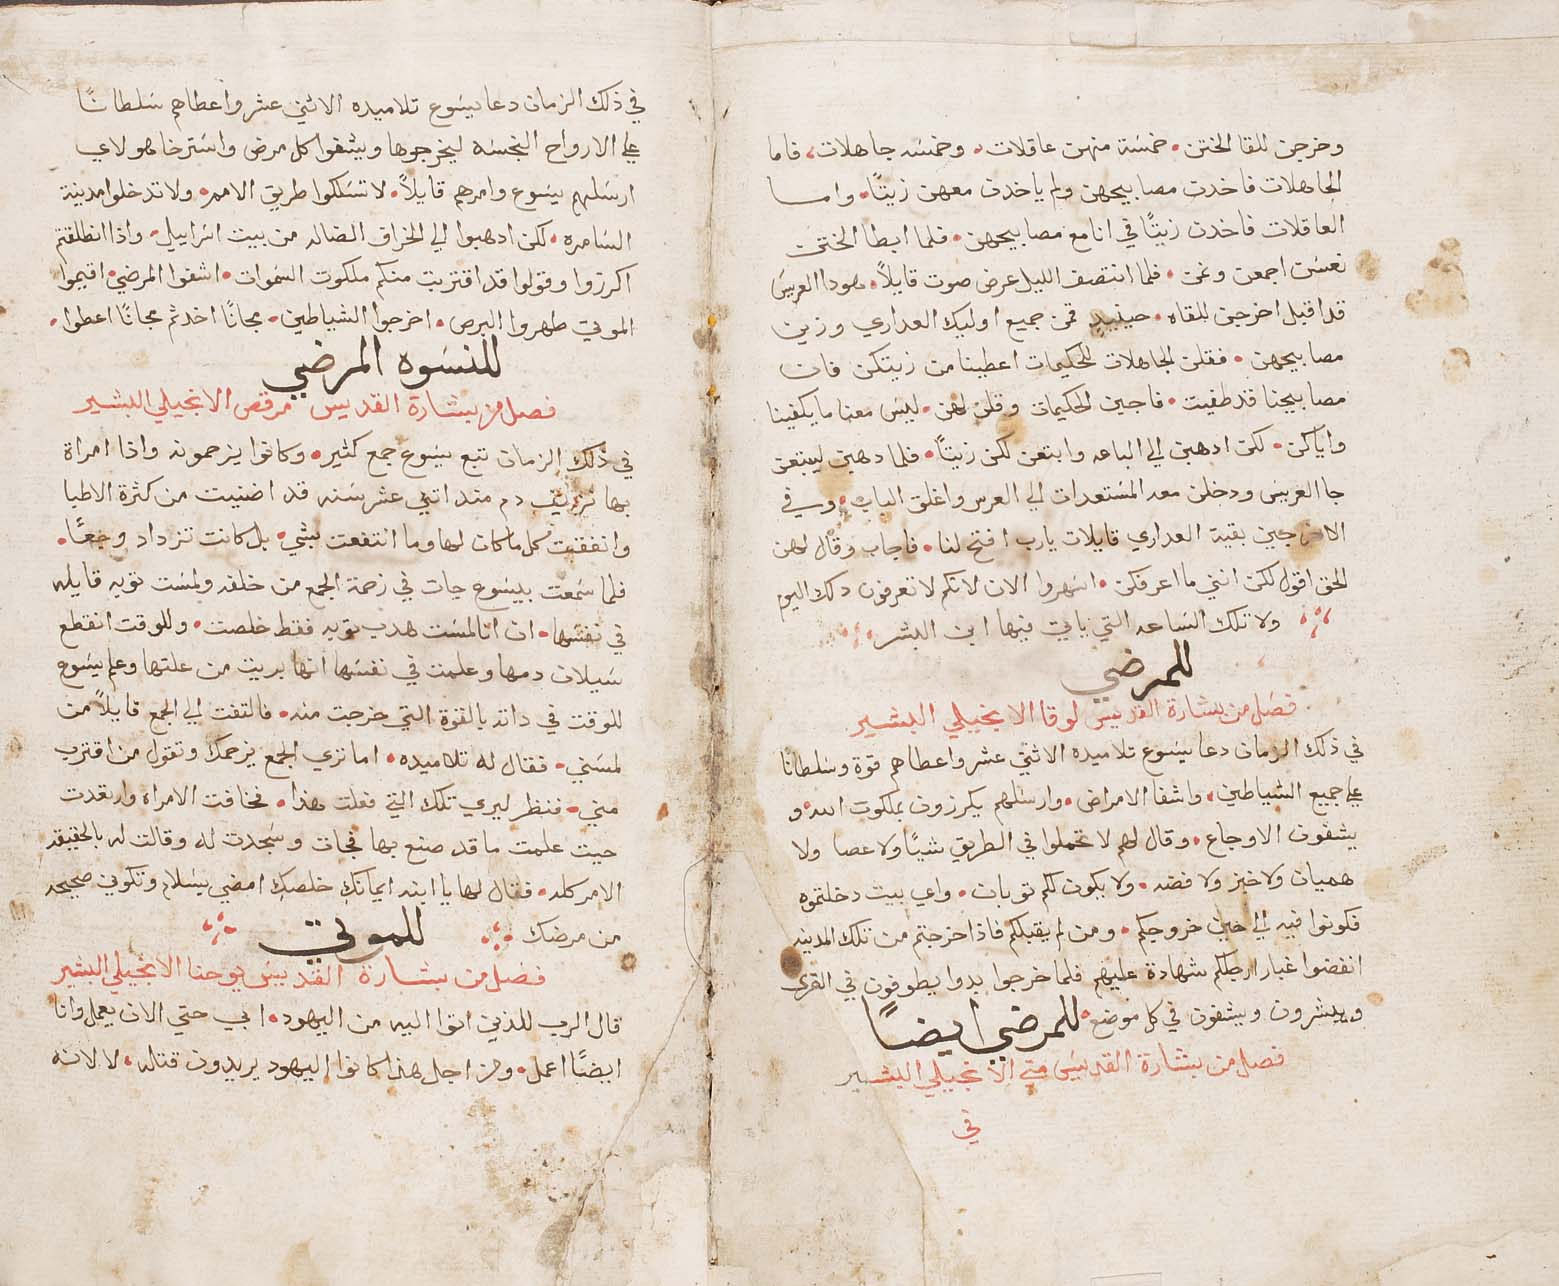 وخرجن للقا الختن. خمسة منهن عاقلات. وخمسه جاهلات، فاما
الجاهلات فاخدت مصابيحهن ولم ياخدن معهن زيتًا. واما
العاقلات فاخدن زيتًا في انا مع مصابيحهن. فلما ابطا الختن
نعسن اجمعن ونمن. فلما انتصف الليل عرض صوت قايلاً. هودا العريس
قد اقبل اخرجن للقاه. حينيد قمن جميع اوليك العداري وزين
مصابيحهن. فقلن الجاهلات للحكيمات اعطينا من زيتكن فان
مصابيحنا قد طفيت. فاجبن الحكيمات وقلن لهن. ليس معنا ما يكفينا
واياكن. لكن ادهبن الي الباعه وابتعن لكن زيتًا. فلما دهبن ليبتعن
جا العريس ودخلن معه المستعدات الي العرس واغلق الباب. وفي
الاخر جين بقية العداري قايلات يارب افتح لنا. فاجاب وقال لهن
الحق اقول لكن انني ما اعرفكن. اسهروا الان لانكم لا تعرفون دلك اليوم
ولا تلك الساعه التي ياتي فيها ابن البشر
للمرضي
فصل من بشارة القديس لوقا الانجيلي البشير
في ذلك الزمان دعا يسوع تلاميده الاثني عشر واعطاهم قوة وسلطانا
علي جميع الشياطين، واشفا الامراض. وارسلهم يكرزون بملكوت الله. و
يشفون الاوجاع. وقال لهم لا تحملوا في الطريق شيئًا ولا عصا ولا
هميان ولا خبز ولا فضه. ولا يكون لكم توبان. واي بيت دخلتموه
فكونوا فيه الي حين خروجكم. ومن لم يقبلكم فاذا خرجتم من تلك المدينه
انفضوا غبار ارجلكم شهادة عليهم فلما خرجوا بدوا يطوفون في القري
ويبشرون ويشفون في كل موضع. للمرضي ايضًا
فصل من بشارة القديس متي الانجيلي البشير
في
في ذلك الزمان دعا يسوع تلاميده الاثني عشر واعطاهم سلطانًا
علي الارواح النجسه ليخرجوها ويشفوا كل مرض واسترخا هولاي
ارسلهم يسوع وامرهم قايلاً. لا تسلكوا طريق الامم. ولا تدخلوا مدينة
السامره. لكن ادهبوا الي الخراف الضاله من بيت اسراييل. واذا انطلقتم
اكرزوا وقولوا قد اقتربت منكم ملكوت السموات. اشفوا المرضي. اقيموا
الموتي طهروا البرص. اخرجوا الشياطين. مجانًا اخدتم مجانًا اعطوا.
للنسوه المرضي
فصل من بشارة القديس مرقص الانجيلي البشير
في ذلك الزمان تبع يسوع جمع كثير. وكانوا يزحمونه واذا امراة
بها نزيف دم مند اتني عشر سنه قد اضنيت من كثرة الاطبا
وانفقت كل ما كان لها وما انتفعت بشي. بل كانت تزداد وجعًا.
فلما سمعت بيسوع جات في زحمة الجمع من خلفه ولمست توبه قايله
في نفسها. ان انا لمست هدب توبه فقط خلصت. وللوقت انقطع
سيلان دمها وعلمت في نفسها انها بريت من علتها وعلم يسوع
للوقت في داته بالقوة التي خرجت منه. فالتفت الي الجمع قايلاً من
لمسني. فقال له تلاميده. اما تري الجمع يزحمك وتقول من اقترب
مني. فنظر ليري تلك التي فعلت هذا. فخافت الامراه وارتعدت
حيت علمت ما قد صنع بها فجات وسجدت له وقالت له بالحقيقه
الامر كله. فقال لها يا ابنه ايمانكِ خلصكِ امضي بسلام وتكوني صحيحه
من مرضك
للموتي
فصل من بشارة القديس يوحنا الانجيلي البشير
قال الرب للذين اتوا اليه من اليهود. ابي حتي الان يعمل وانا
ايضًا اعمل. ومن اجل هذا كانوا اليهود يريدون قتله. لا لانه